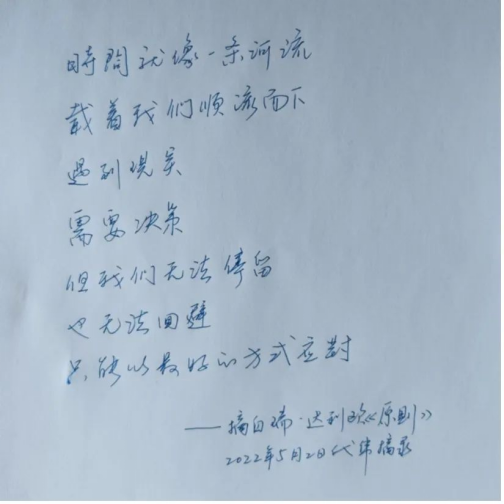 時間就像一条河流
载着我们顺流而下
遇到现实
需要决策
但我们无法停留
也无法回避
只能以最好的方式应对
——摘自瑞·达利欧《原则》
2022年5月2日代伟摘录